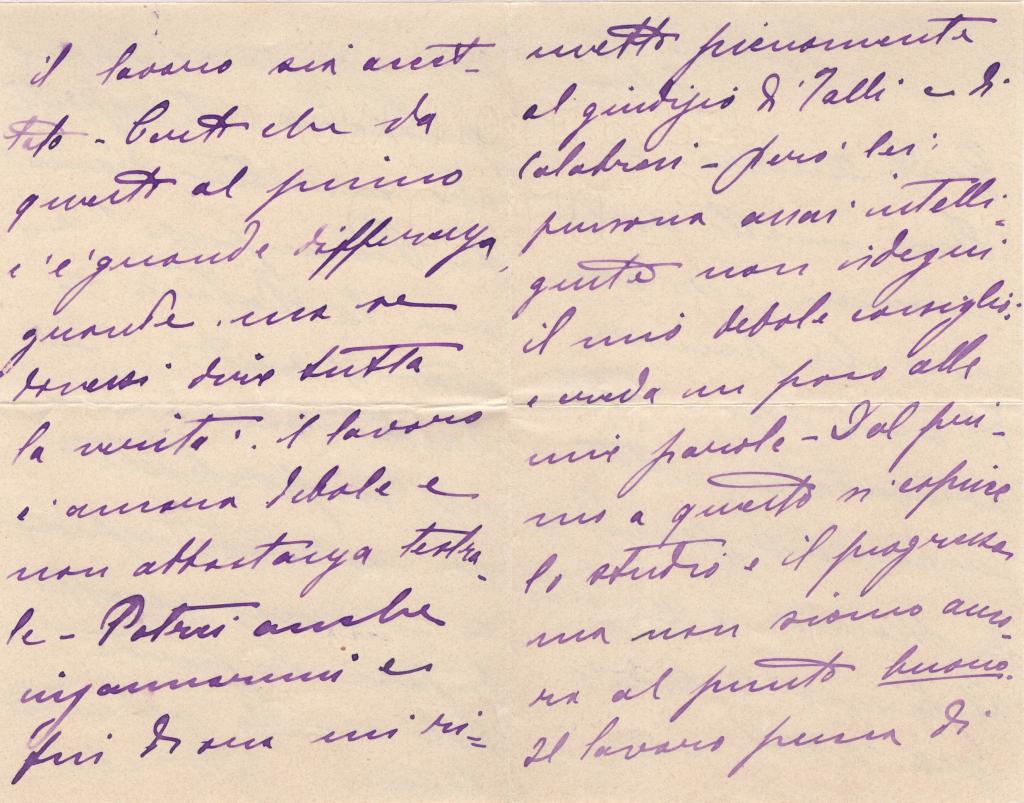 il lavoro sia accet-
tato - Certo che da
questo al primo
c'è grande differenza,
grande. ma se
dovessi dire tutta
la verità: il lavoro
è ancora debole e
non abbastanza teatra=
le - Potrei anche
ingannarmi e
fin di ora mi ri=
metto pienamente
al giudizio di Talli e di
Calabresi - Però lei:
persona assai intelli=
gente non isdegni
il mio debole consiglio:
e creda un poco alle
mie parole - Dal pri-
mo a questo si capisce
lo studio e il progresso
ma non siamo anco-
ra al punto buono.
Il lavoro pecca di